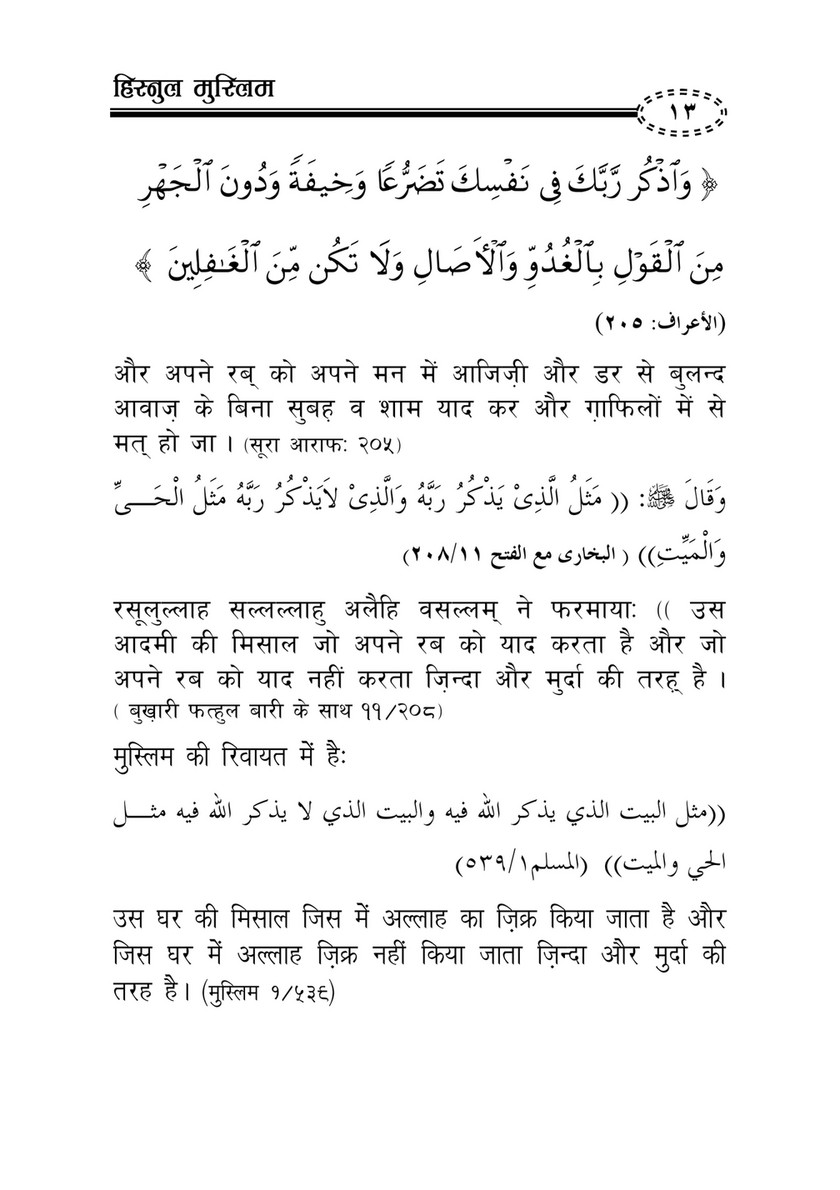 हिस्नुल मुस्लिम
١٣
﴿ وَٱذْكُر رَّبَّكَ فِى نَفْسِكَ تَضَرُّعًا وَخِيفَةً وَدُونَ ٱلْجَهْرِ
مِنَ ٱلْقَوْلِ بِٱلْغُدُوِّ وَٱلْأَصَالِ وَلَا تَكُن مِّنَ ٱلْغَـٰفِلِينَ ﴾
(الأعراف: ٢٠٥)
और अपने रब् को अपने मन में आजिज़ी और डर से बुलन्द
आवाज़ के बिना सुबह़ व शाम याद कर और ग़ाफिलों में से
मत् हो जा । (सूरा आराफः २०५)
وَقَالَ ﷺ: (( مَثَلُ الَّذِىْ يَذْكُرُ رَبَّهُ وَالَّذِىْ لاَيَذْكُرُ رَبَّهُ مَثَلُ الْحَـــىِّ
وَالْمَيِّتِ)) ( البخارى مع الفتح ٢٠٨/١١)
रसूलुल्लाह सल्लल्लाहु अलैहि वसल्लम् ने फरमायाः (( उस
आदमी की मिसाल जो अपने रब को याद करता है और जो
अपने रब को याद नहीं करता ज़िन्दा और मुर्दा की तरह़ है ।
( बुख़ारी फत्हुल बारी के साथ ११/२०८)
मुस्लिम की रिवायत में हैः
((مثل البيت الذي يذكر الله فيه والبيت الذي لا يذكر الله فيه مثـــل
الحي والميت)) (المسلم٥٣٩/١)
उस घर की मिसाल जिस में अल्लाह का ज़िक्र किया जाता है और
जिस घर में अल्लाह ज़िक्र नहीं किया जाता ज़िन्दा और मुर्दा की
तरह है। (मुस्लिम १/५३९)